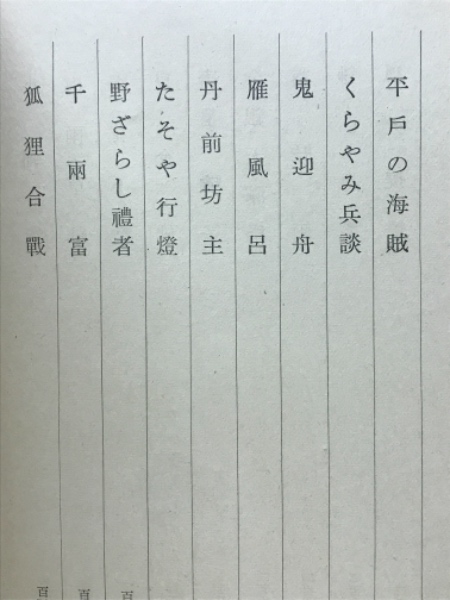 平戶の海賊
くらやみ兵談
鬼迎舟
雁風呂
丹前坊主
たそや行燈
野ざらし禮者
百
千兩富
百
狐狸合戰
百